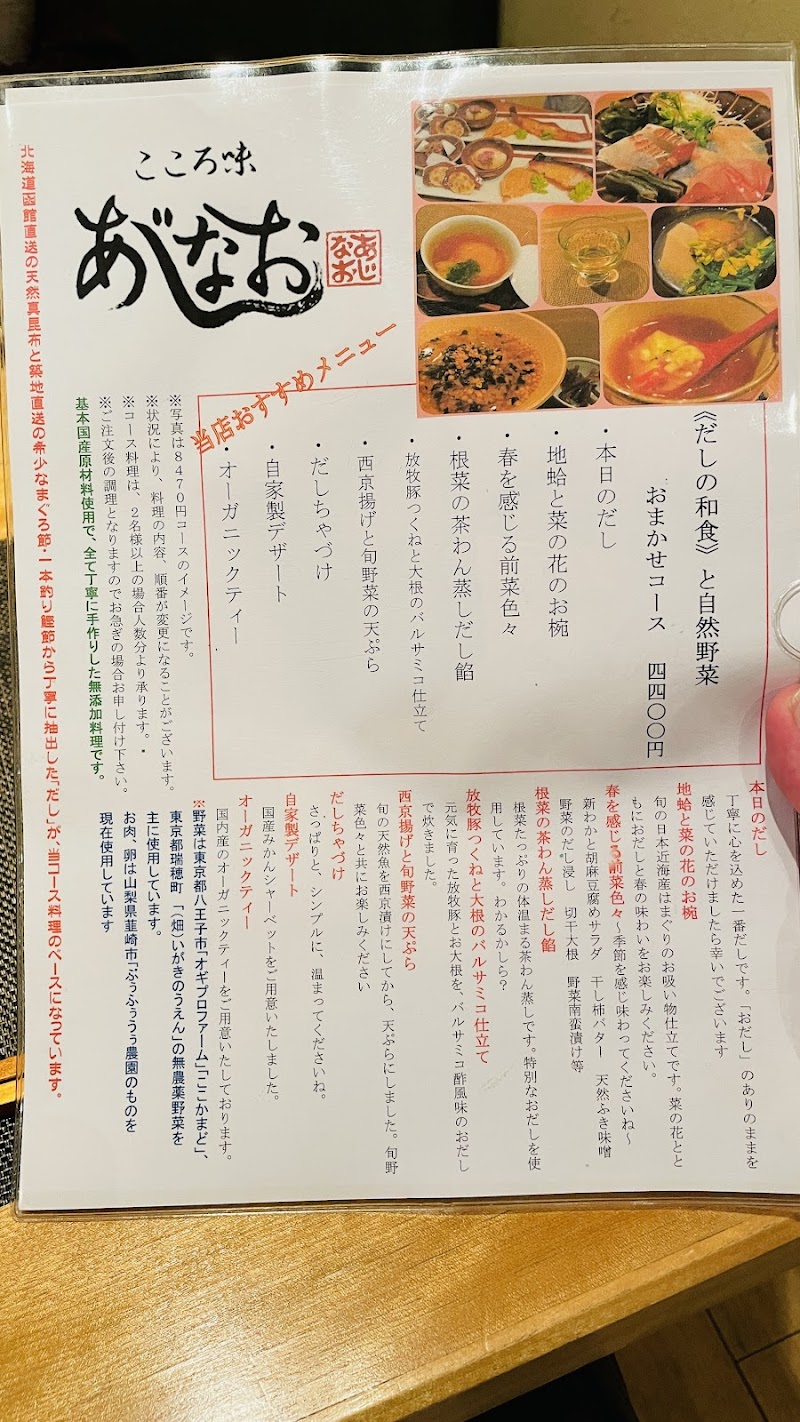 こころ味
あじなお
あじ
なお
当店おすすめメニュー
《だしの和食》と自然野菜
おまかせコース　四四〇〇円
・本日のだし
・地蛤と菜の花のお椀
・春を感じる前菜色々
・根菜の茶わん蒸しだし餡
・放牧豚つくねと大根のバルサミコ仕立て
・西京揚げと旬野菜の天ぷら
・だしちゃづけ
・自家製デザート
・オーガニックティー
※写真は８４７０円コースのイメージです。
※状況により、料理の内容、順番が変更になることがございます。
※コース料理は、２名様以上の場合人数分より承ります。
※ご注文後の調理となりますのでお急ぎの場合お申し付け下さい。
基本国産原材料使用で、全て丁寧に手作りした無添加料理です。
北海道函館直送の天然真昆布と築地直送の希少なまぐろ節・一本釣り鰹節から丁寧に抽出した「だし」が、当コース料理のベースになっています。
本日のだし
丁寧に心を込めた一番だしです。「おだし」のありのままを
感じていただけましたら幸いでございます
地蛤と菜の花のお椀
旬の日本近海産はまぐりのお吸い物仕立てです。菜の花とと
もにおだしと春の味わいをお楽しみください。
春を感じる前菜色々～季節を感じ味わってくださいね～
新わかと胡麻豆腐めサラダ　干し柿バター　天然ふき味噌
野菜のだし浸し　切干大根　野菜南蛮漬け等
根菜の茶わん蒸しだし餡
根菜たっぷりの体温まる茶わん蒸しです。特別なおだしを使
用しています。わかるかしら？
放牧豚つくねと大根のバルサミコ仕立て
元気に育った放牧豚とお大根を、バルサミコ酢風味のおだし
で炊きました。
西京揚げと旬野菜の天ぷら
旬の天然魚を西京漬けにしてから、天ぷらにしました。旬野
菜色々と共にお楽しみください
だしちゃづけ
さっぱりと、シンプルに、温まってくださいね。
自家製デザート
国産みかんシャーベットをご用意いたしました。
オーガニックティー
国内産のオーガニックティーをご用意いたしております。
※野菜は東京都八王子市「オギプロファーム」「ここかまど」、
東京都瑞穂町「（畑）いがきのうえん」の無農薬野菜を
主に使用しています。
お肉、卵は山梨県韮崎市「ぶぅふぅうぅ農園のものを
現在使用しています